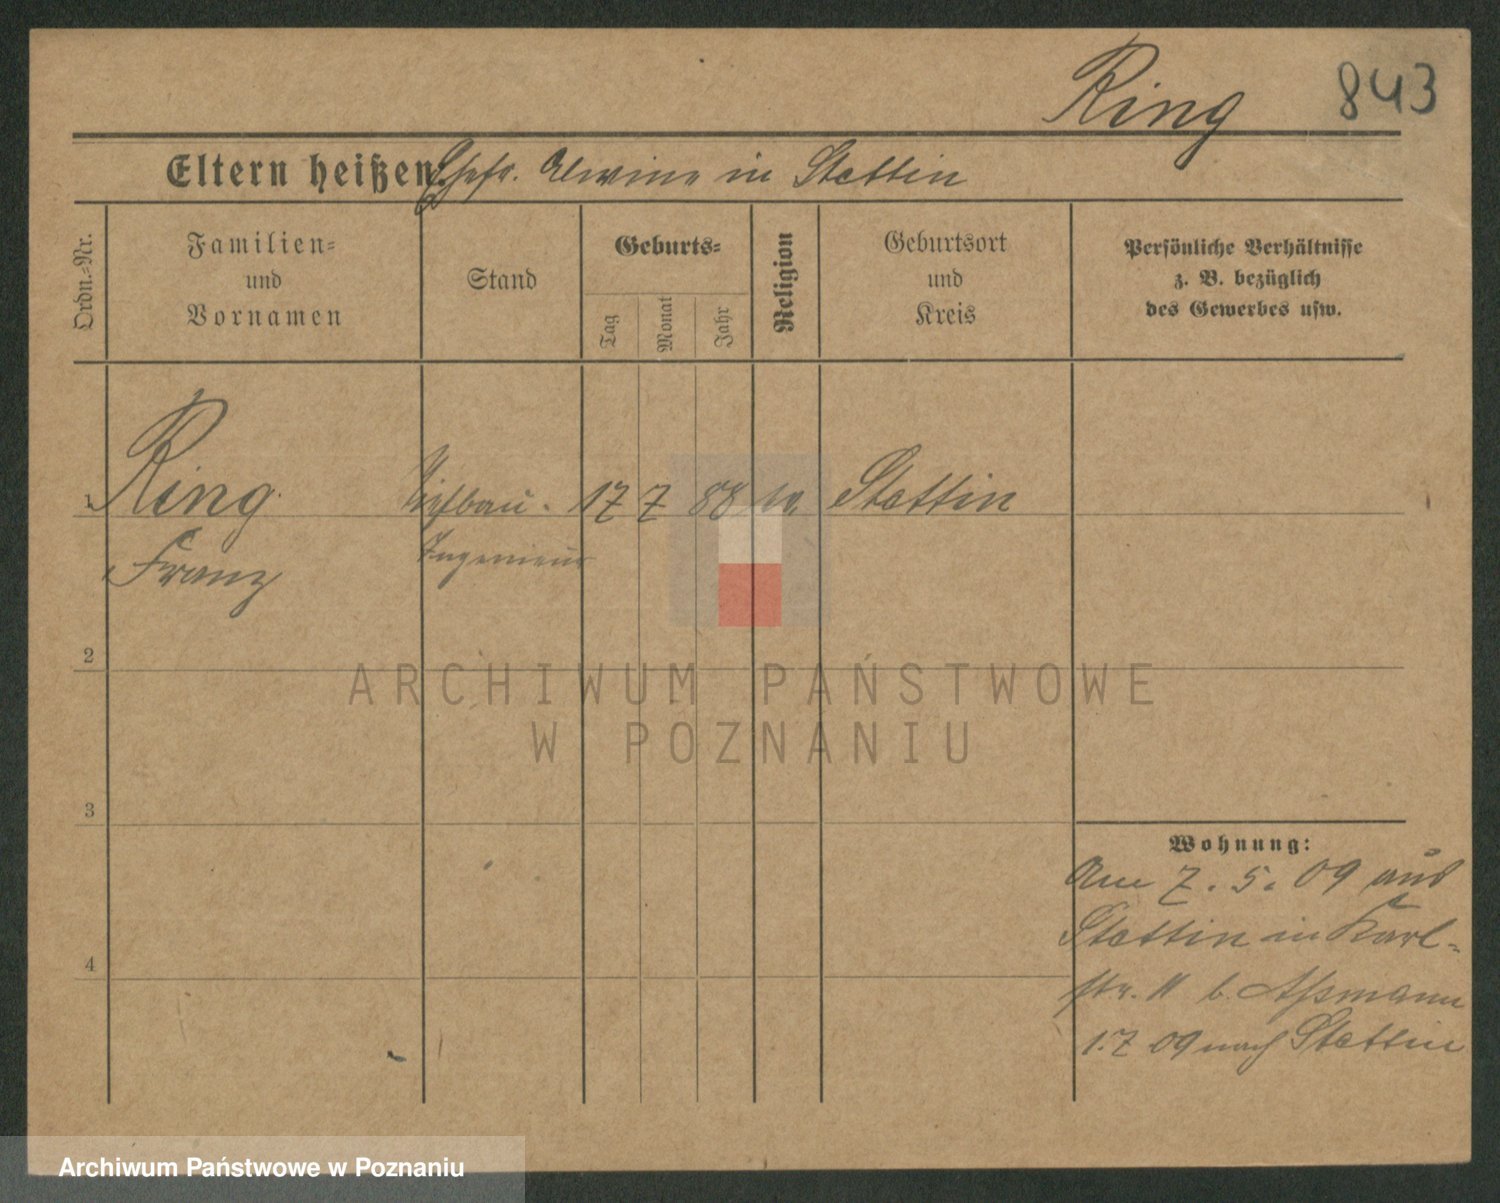 Ring 843
Eltern heißen: Ehefr. Alwine in Stettin
Ordn.=Nr.
Familien=
und
Vornamen
Stand
Geburts=
Tag
Monat
Jahr
Religion
Geburtsort
und
Kreis
Persönliche Verhältnisse
z. B. bezüglich
des Gewerbes usw.
1 Ring Tiefbau- 17 7 88 Stettin
Franz Ingenieur
2
3
4
Wohnung:
Am 7. 5. 09 aus
Stettin in Karl-
str. 11 b. Assmann
1.7 09 nach Stettin
ARCHIWUM PAŃSTWOWE
W POZNANIU
Archiwum Państwowe w Poznaniu